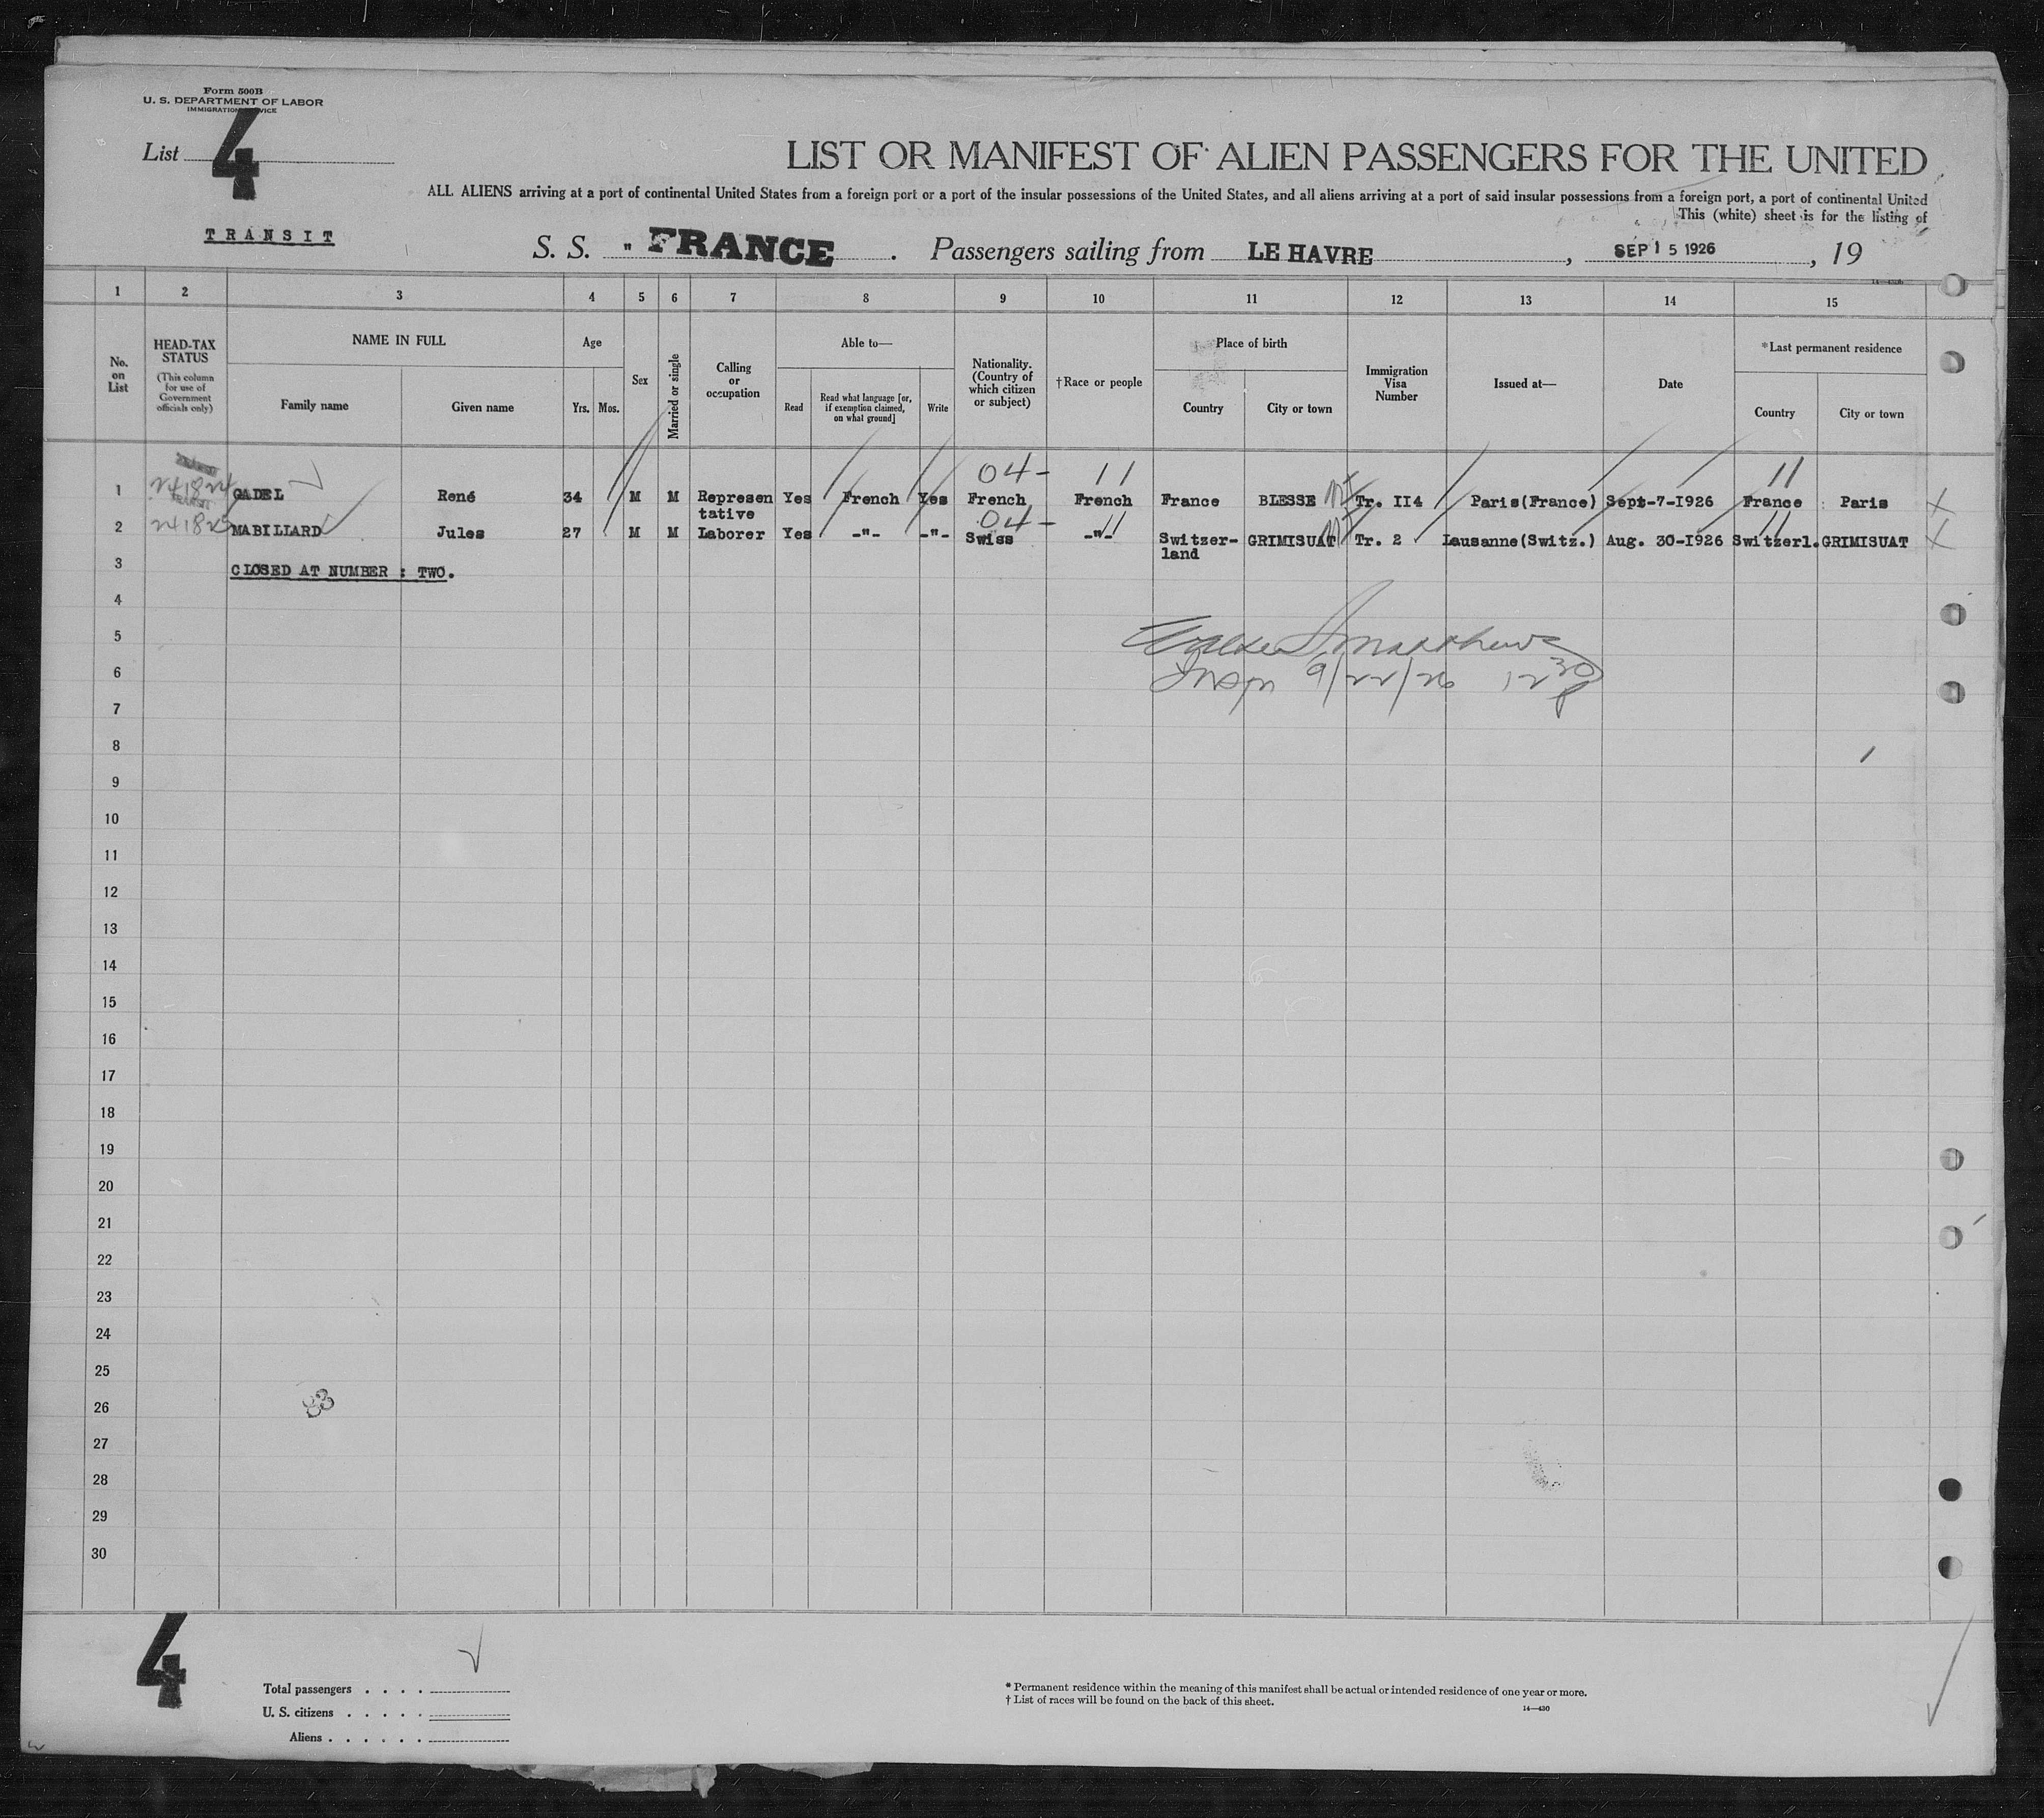 Form 500B
U. S. DEPARTMENT OF LABOR
IMMIGRATION SERVICE
List 4
LIST OR MANIFEST OF ALIEN PASSENGERS FOR THE UNITED
ALL ALIENS arriving at a port of continental United States from a foreign port or a port of the insular possessions of the United States, and all aliens arriving at a port of said insular possessions from a foreign port, a port of continental United
This (white) sheet is for the listing of
TRANSIT
S. S. " FRANCE . Passengers sailing from LE HAVRE , SEP 15 1926 , 19
1 2 3 4 5 6 7 8 9 10 11 12 13 14 15
No. on List
HEAD-TAX STATUS
(This column for use of Government officials only)
NAME IN FULL
Family name
Given name
Age
Yrs.
Mos.
Sex
Married or single
Calling or occupation
Able to—
Read
Read what language [or, if exemption claimed, on what ground]
Write
Nationality. (Country of which citizen or subject)
†Race or people
Place of birth
Country
City or town
Immigration Visa Number
Issued at—
Date
*Last permanent residence
Country
City or town
04- 11 11
1 241824 GADEL René 34 M M Represen Yes French Yes French French France BLESSE Tr. II4 Paris(France) Sept-7-1926 France Paris X
tative
04- 11 11
2 MABILLARD Jules 27 M M Laborer Yes -"- -"- Swiss -"- Switzer- GRIMISUAT Tr. 2 Lausanne(Switz.) Aug. 30-1926 Switzerl. GRIMISUAT X
land
3 CLOSED AT NUMBER : TWO.
4
5
Matthews
6
Insp 9/22/26 12 30 p
7
8
9
10
11
12
13
14
15
16
17
18
19
20
21
22
23
24
25
26
83
27
28
29
30
4
Total passengers . . . .
U. S. citizens . . . . .
Aliens . . . . . .
* Permanent residence within the meaning of this manifest shall be actual or intended residence of one year or more.
† List of races will be found on the back of this sheet.
14—430